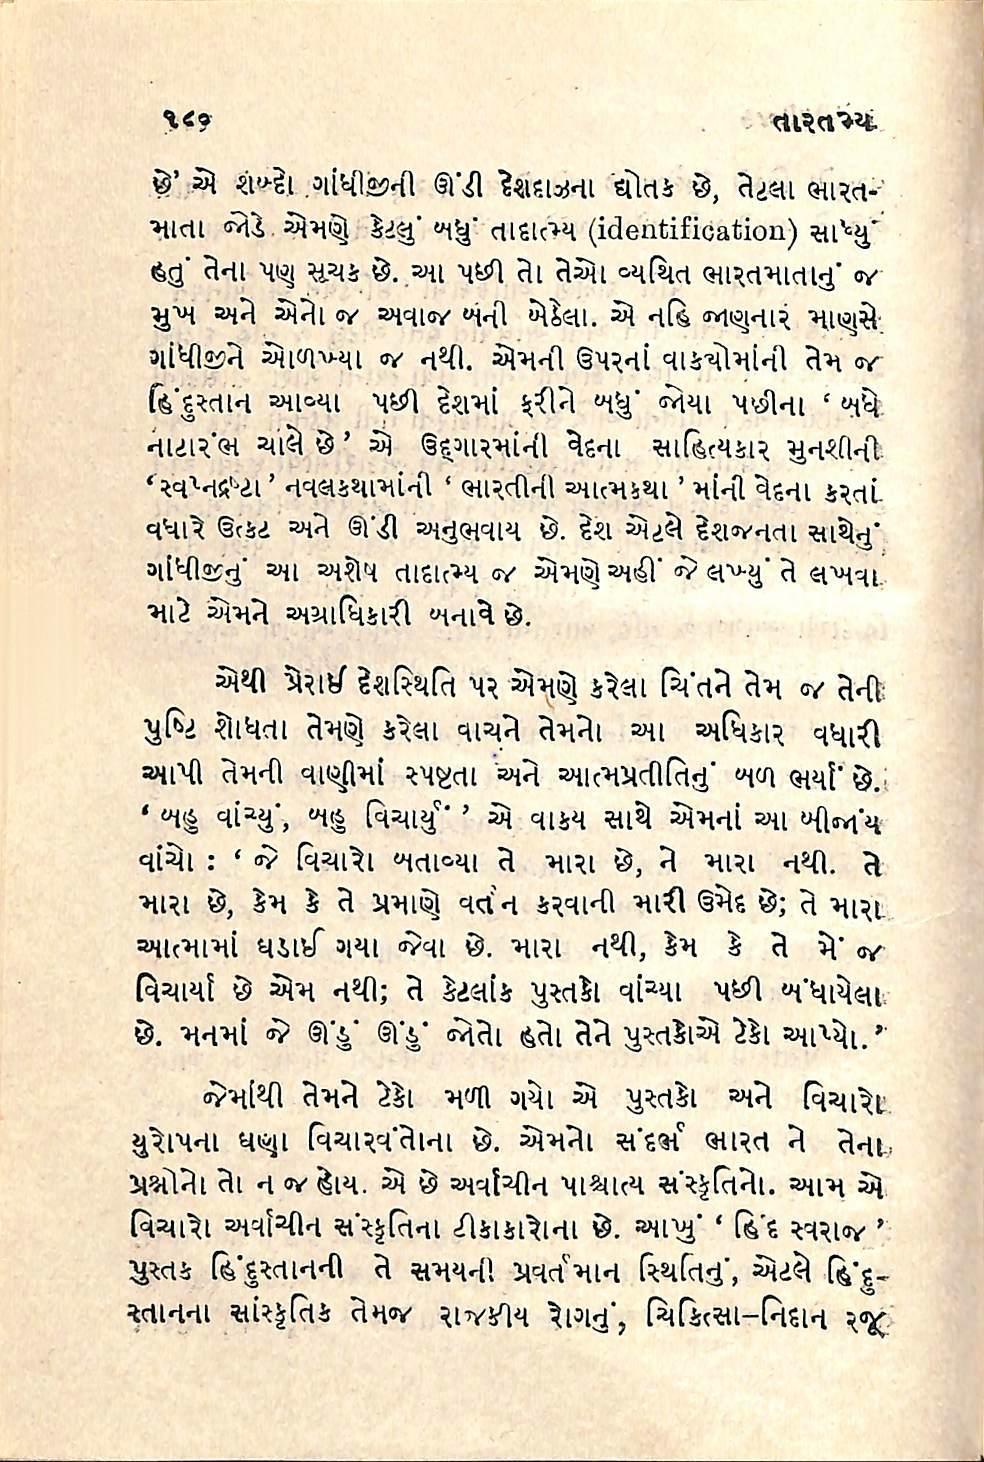 ૧૮૦ તારતમ્ય
છે’ એ શબ્દો ગાંધીજીની ઊંડી દેશદાઝના દ્યોતક છે, તેટલા ભારત-
માતા જોડે એમણે કેટલું બધું તાદાત્મ્ય (identification) સાધ્યું
હતું તેના પણ સૂચક છે. આ પછી તો તેઓ વ્યથિત ભારતમાતાનું જ
મુખ અને એનો જ અવાજ બની બેઠેલા. એ નહિ જાણનાર માણસે
ગાંધીજીને ઓળખ્યા જ નથી. એમની ઉપરનાં વાક્યોમાંની તેમ જ
હિંદુસ્તાન આવ્યા પછી દેશમાં ફરીને બધું જોયા પછીના ‘ બધે
નાટારંભ ચાલે છે’ એ ઉદ્‌ગારમાંની વેદના સાહિત્યકાર મુનશીની
‘સ્વપ્નદ્રષ્ટા’ નવલકથામાંની ‘ ભારતીની આત્મકથા ’ માંની વેદના કરતાં
વધારે ઉત્કટ અને ઊંડી અનુભવાય છે. દેશ એટલે દેશજનતા સાથેનું
ગાંધીજીનું આ અશેષ તાદાત્મ્ય જ એમણે અહીં જે લખ્યું તે લખવા
માટે એમને અગ્રાધિકારી બનાવે છે.
એથી પ્રેરાઈ દેશસ્થિતિ પર એમણે કરેલા ચિંતને તેમ જ તેની
પુષ્ટિ શોધતા તેમણે કરેલા વાચને તેમનો આ અધિકાર વધારી
આપી તેમની વાણીમાં સ્પષ્ટતા અને આત્મપ્રતીતિનું બળ ભર્યાં છે.
‘ બહુ વાંચ્યું, બહુ વિચાર્યું ’ એ વાક્ય સાથે એમનાં આ બીજાંય
વાંચો : ‘ જે વિચારો બતાવ્યા તે મારા છે, ને મારા નથી. તે
મારા છે, કેમ કે તે પ્રમાણે વર્તન કરવાની મારી ઉમેદ છે; તે મારા
આત્મામાં ઘડાઈ ગયા જેવા છે. મારા નથી, કેમ કે તે મેં જ
વિચાર્યા છે એમ નથી; તે કેટલાંક પુસ્તકો વાંચ્યા પછી બંધાયેલા
છે. મનમાં જે ઊંડું ઊંડું જોતો હતો તેને પુસ્તકોએ ટેકો આપ્યો.’
જેમાંથી તેમને ટેકો મળી ગયો એ પુસ્તકો અને વિચારો
યુરોપના ઘણા વિચારવંતોના છે. એમનો સંદર્ભ ભારત ને તેના
પ્રશ્નોનો તો ન જ હોય. એ છે અર્વાચીન પાશ્ચાત્ય સંસ્કૃતિનો. આમ એ
વિચારો અર્વાચીન સંસ્કૃતિના ટીકાકારોના છે. આખું ‘ હિંદ સ્વરાજ ’
પુસ્તક હિંદુસ્તાનની તે સમયની પ્રવર્તમાન સ્થિતિનું, એટલે હિંદુ-
સ્તાનના સાંસ્કૃતિક તેમજ રાજકીય રોગનું, ચિકિત્સા-નિદાન રજૂ